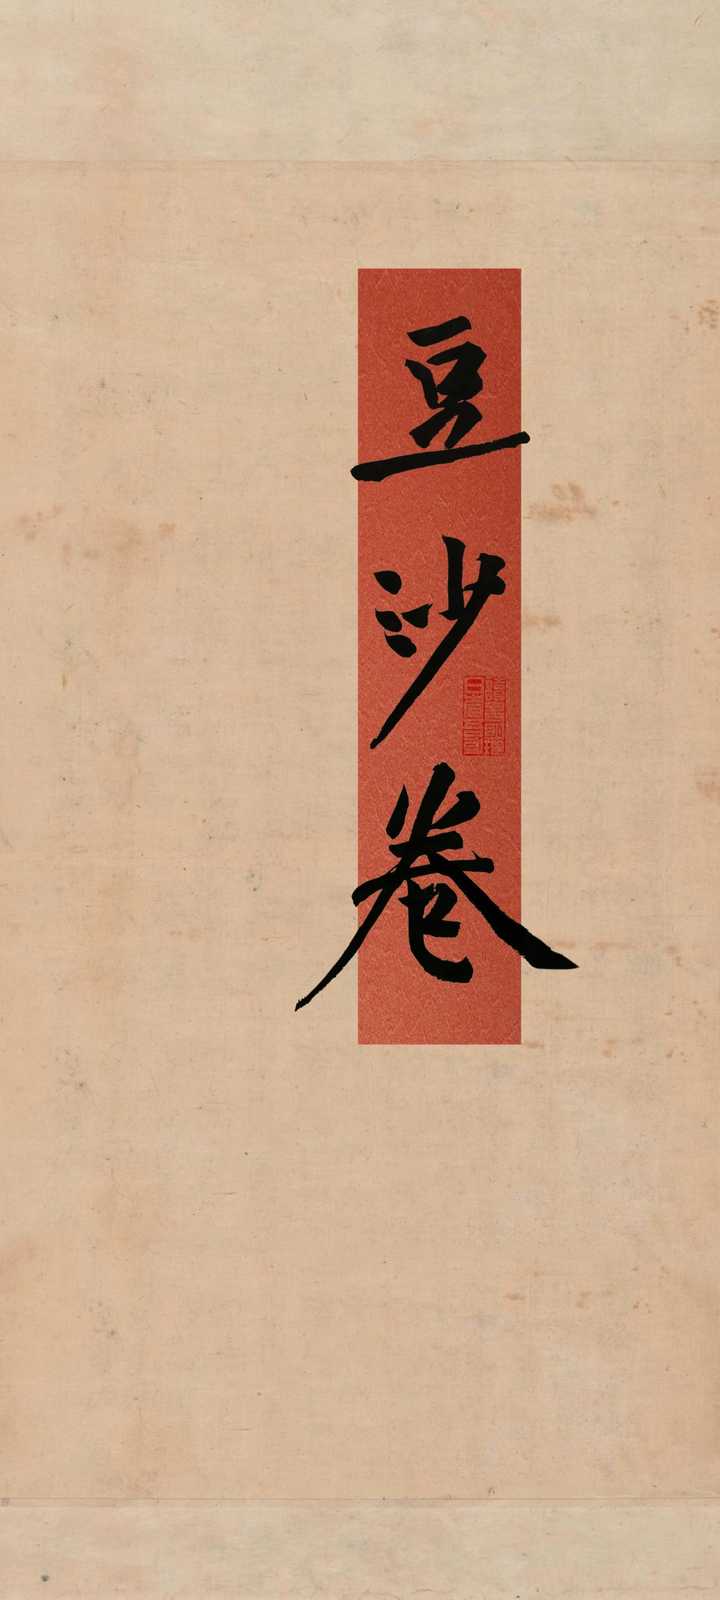 豆沙卷